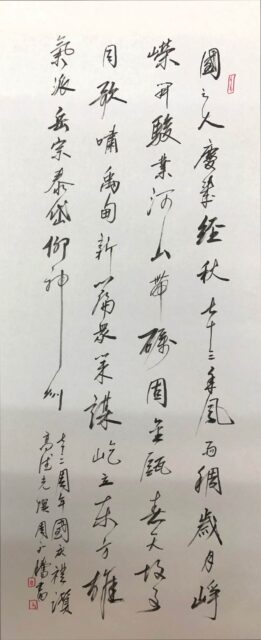 國之人慶華經秋七十三年風雨稠歲月崢
嶸開駿業河山帶礪固金甌春天故事
同歌嘯禹甸新篇眾策謀屹立東方雄
氣派岳宗泰岱仰神州
七十三周年國慶禮讚
高德光撰周